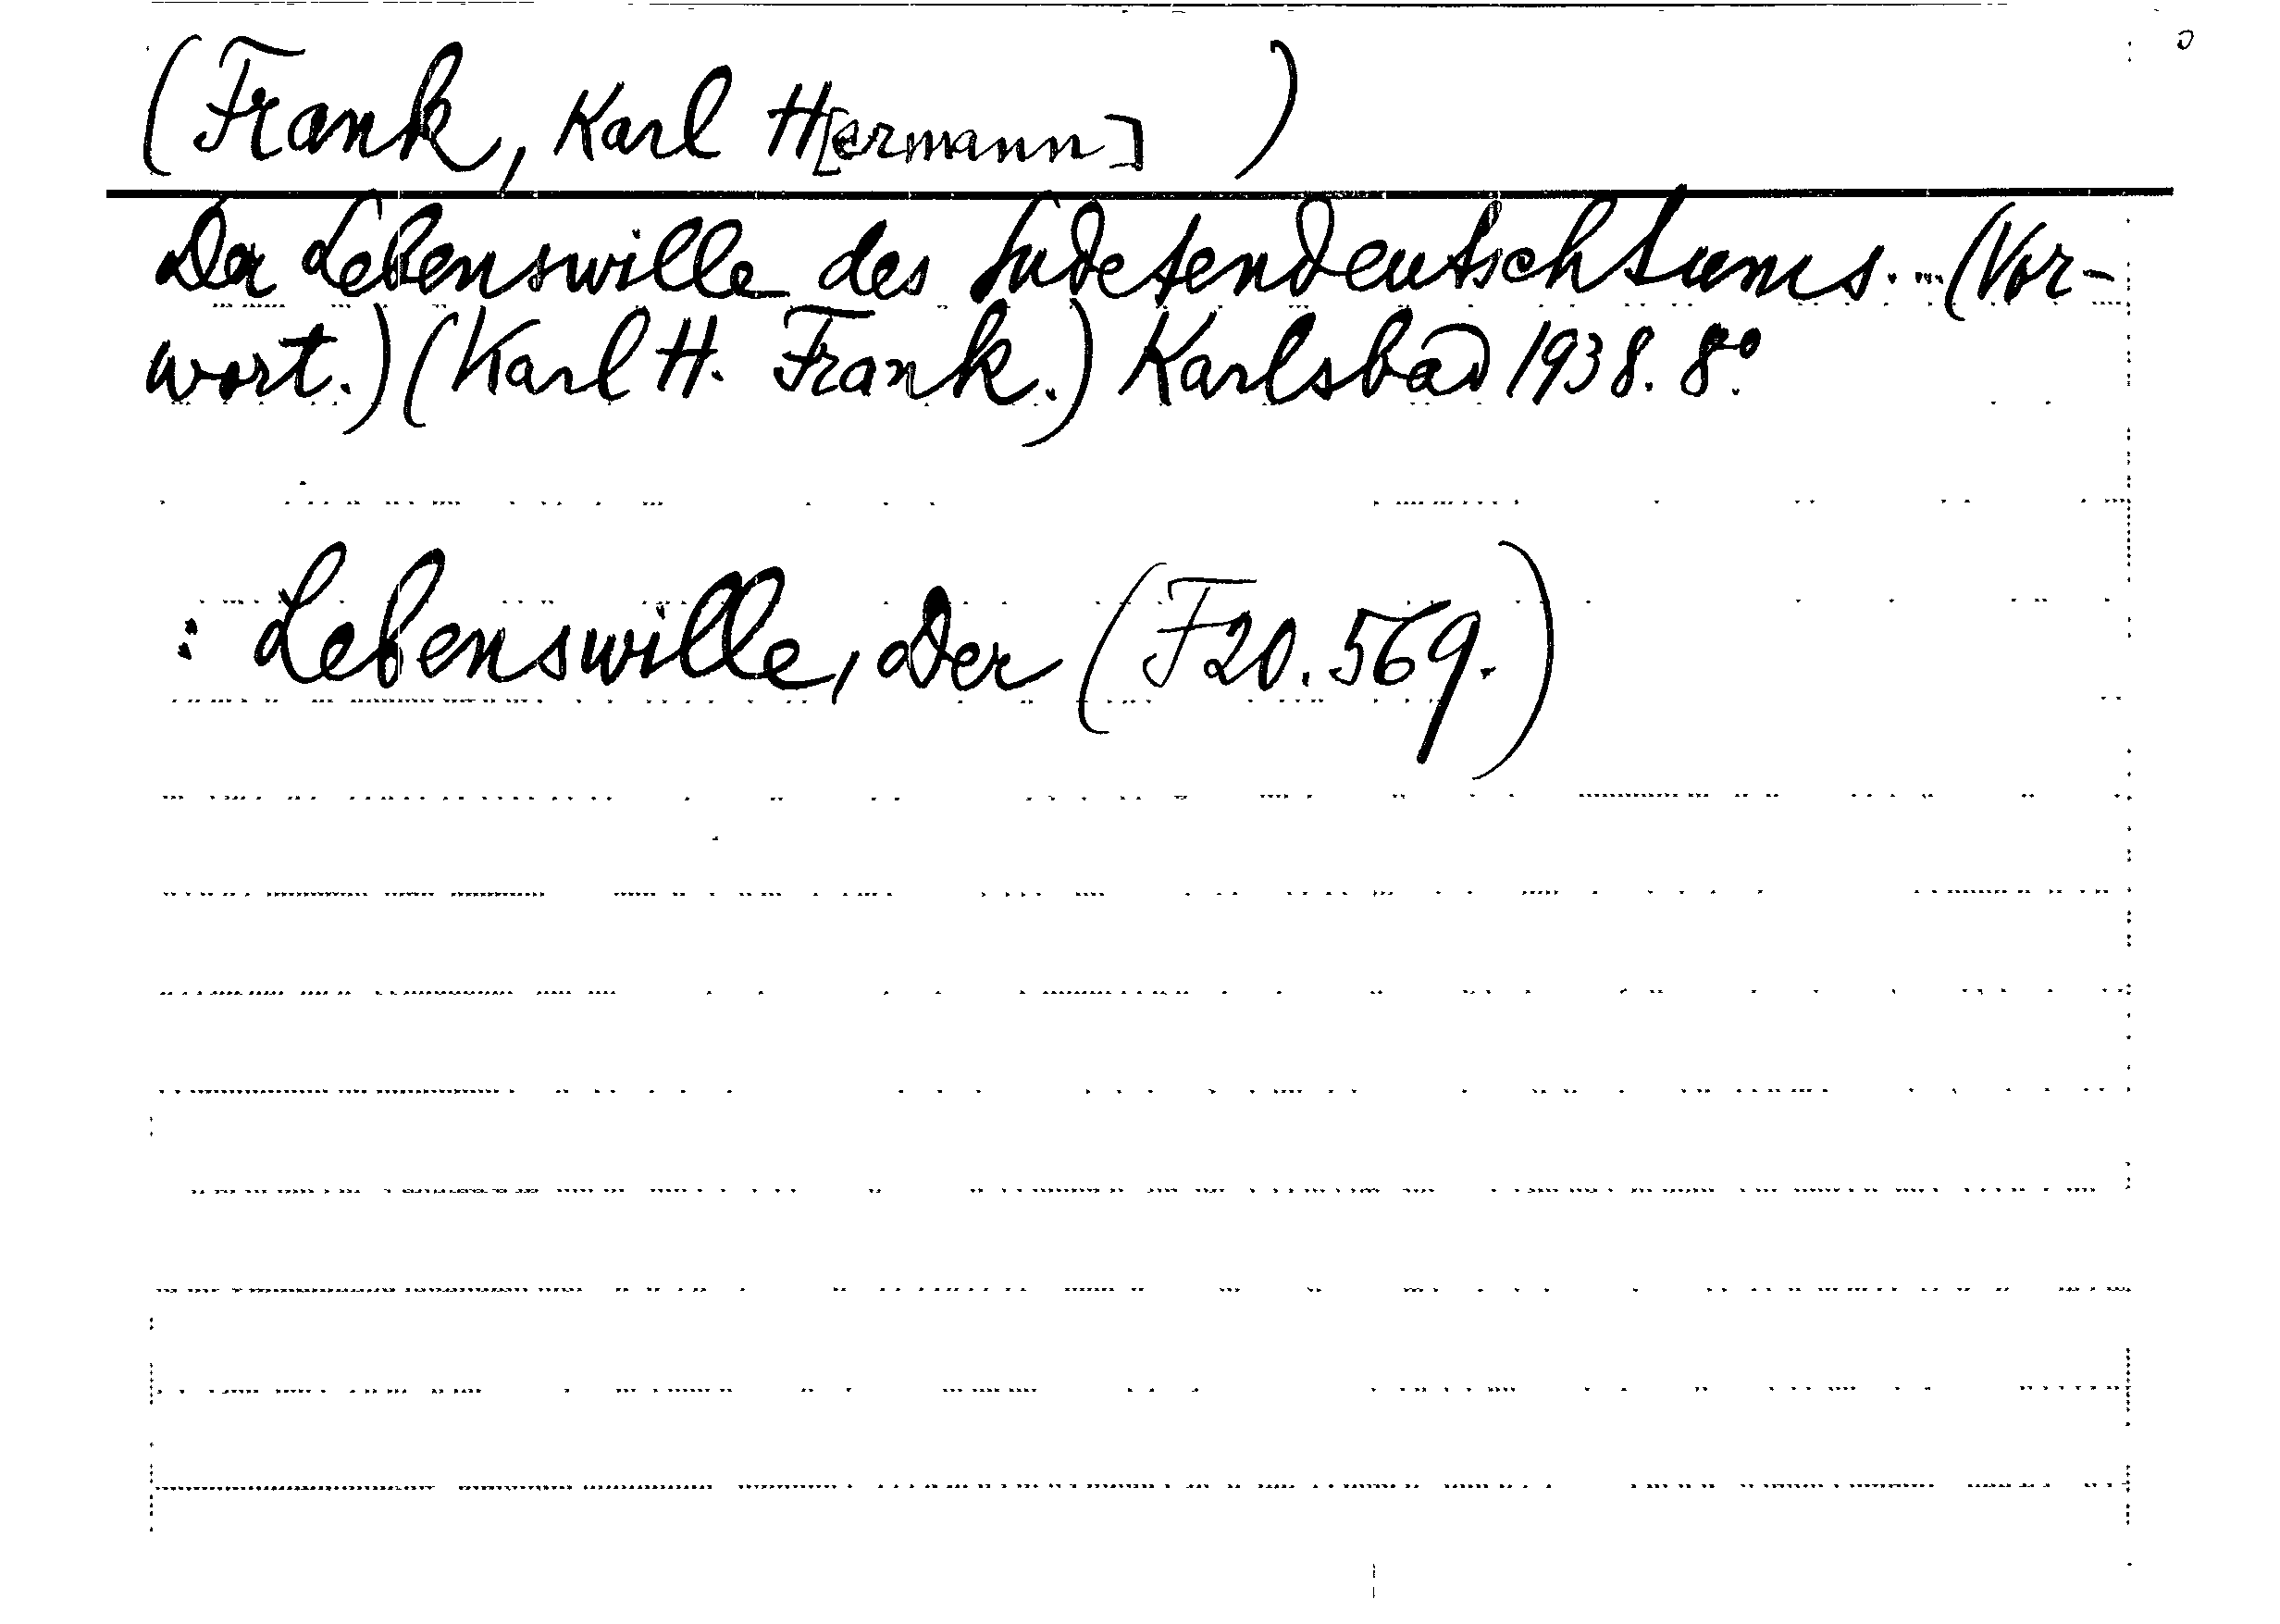 (Frank, Karl H[ermann] )
Der Lebenswille des Sudetendeutschtums. ... (Vor-
wort.) (Karl H. Frank.) Karlsbad 1938. 8°.
: Lebenswille, Der (F20.569.)